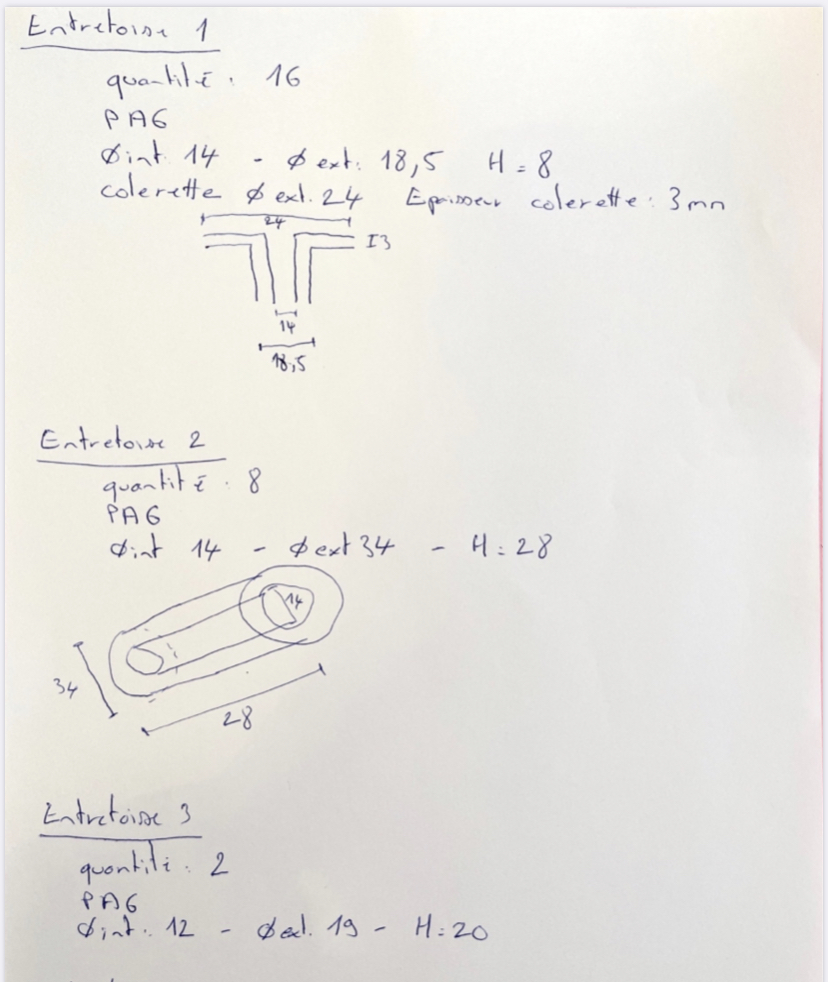 Entretoise 1
quantité : 16
PA6
Øint 14 - Øext. 18,5 H = 8
colerette Øext. 24 Epaisseur colerette : 3mm
24
I3
14
18,5
Entretoise 2
quantité : 8
PA6
Øint 14 - Øext 34 - H : 28
14
34
28
Entretoise 3
quantité : 2
PA6
Øint. 12 - Øext. 19 - H : 20